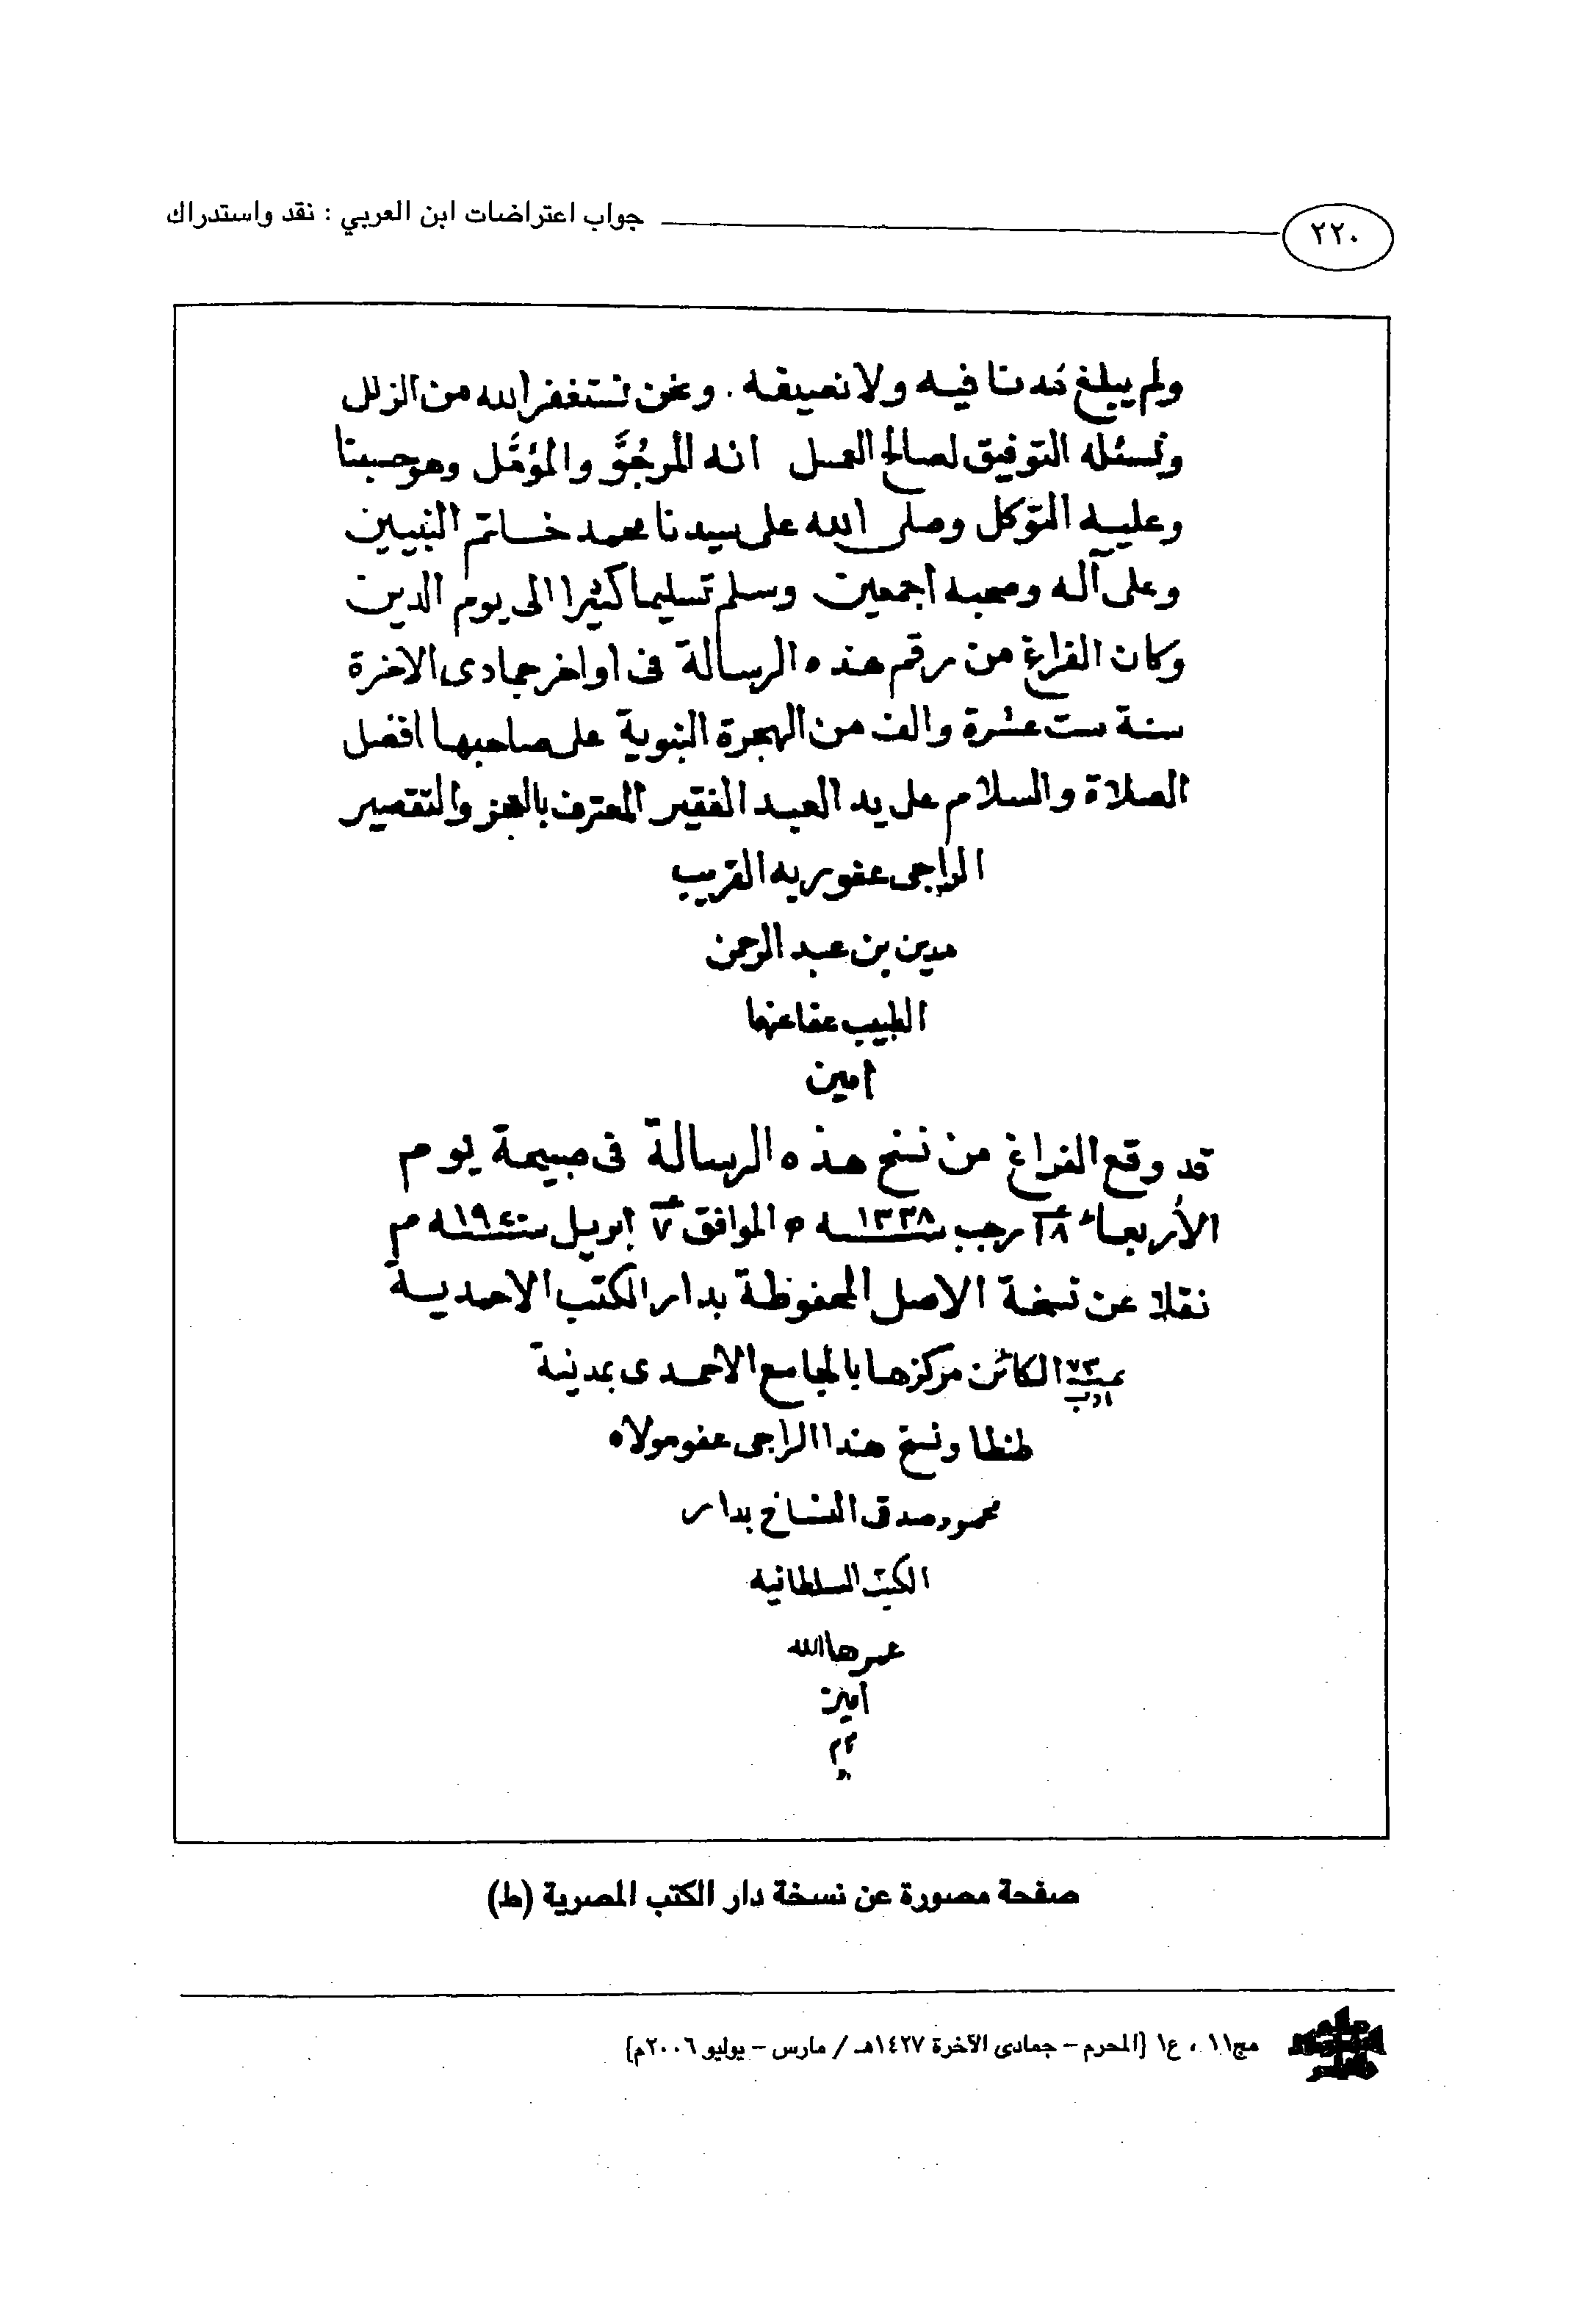 ٢٢٠
جواب اعتراضات ابن العربي : نقد واستدراك
ولم يبلغ مُدنا فيه ولا نصيفه . ونحن نستغفر الله من الزلل
ونسئله التوفيق لصالح العمل انه المرجُوَّ والمؤمَّل وهو حسبنا
وعليه التوكل وصلى الله على سيدنا محمد خاتم النبيين
وعلى آله وصحبه اجمعين وسلم تسليما كثيرا الى يوم الدين
وكان الفراغ من رقم هذه الرسالة فى اواخر جمادى الاخرة
سنة ست عشرة والف من الهجرة النبوية على صاحبها افضل
الصلاة والسلام على يد العبد الفقير المعترف بالعجز والتقصير
الراجى عفو ربه القريب
مدين بن عبد الرحمن
الطبيب عفا عنهما
امين
قد وقع الفراغ من نسخ هذه الرسالة فى صبيحة يوم
الأربعاء ١٨ رجب سنة ١٣٣٨ ه الموافق ٧ ابريل سنة ١٩٢٠ م
نقلا عن نسخة الاصل المحفوظة بدار الكتب الاحمدية
بنمرة ٧٣ ادب الكائن مركزها بالجامع الاحمدى بمدينة
طنطا ونسخ هذا الراجى عفو مولاه
محمود صدقى النساخ بدار
الكتب السلطانيه
عمرها الله
امين
صفحة مصورة عن نسخة دار الكتب المصرية (ط)
مج١١ ، ع١ [المحرم – جمادى الآخرة ١٤٢٧هـ / مارس – يوليو ٢٠٠٦م]